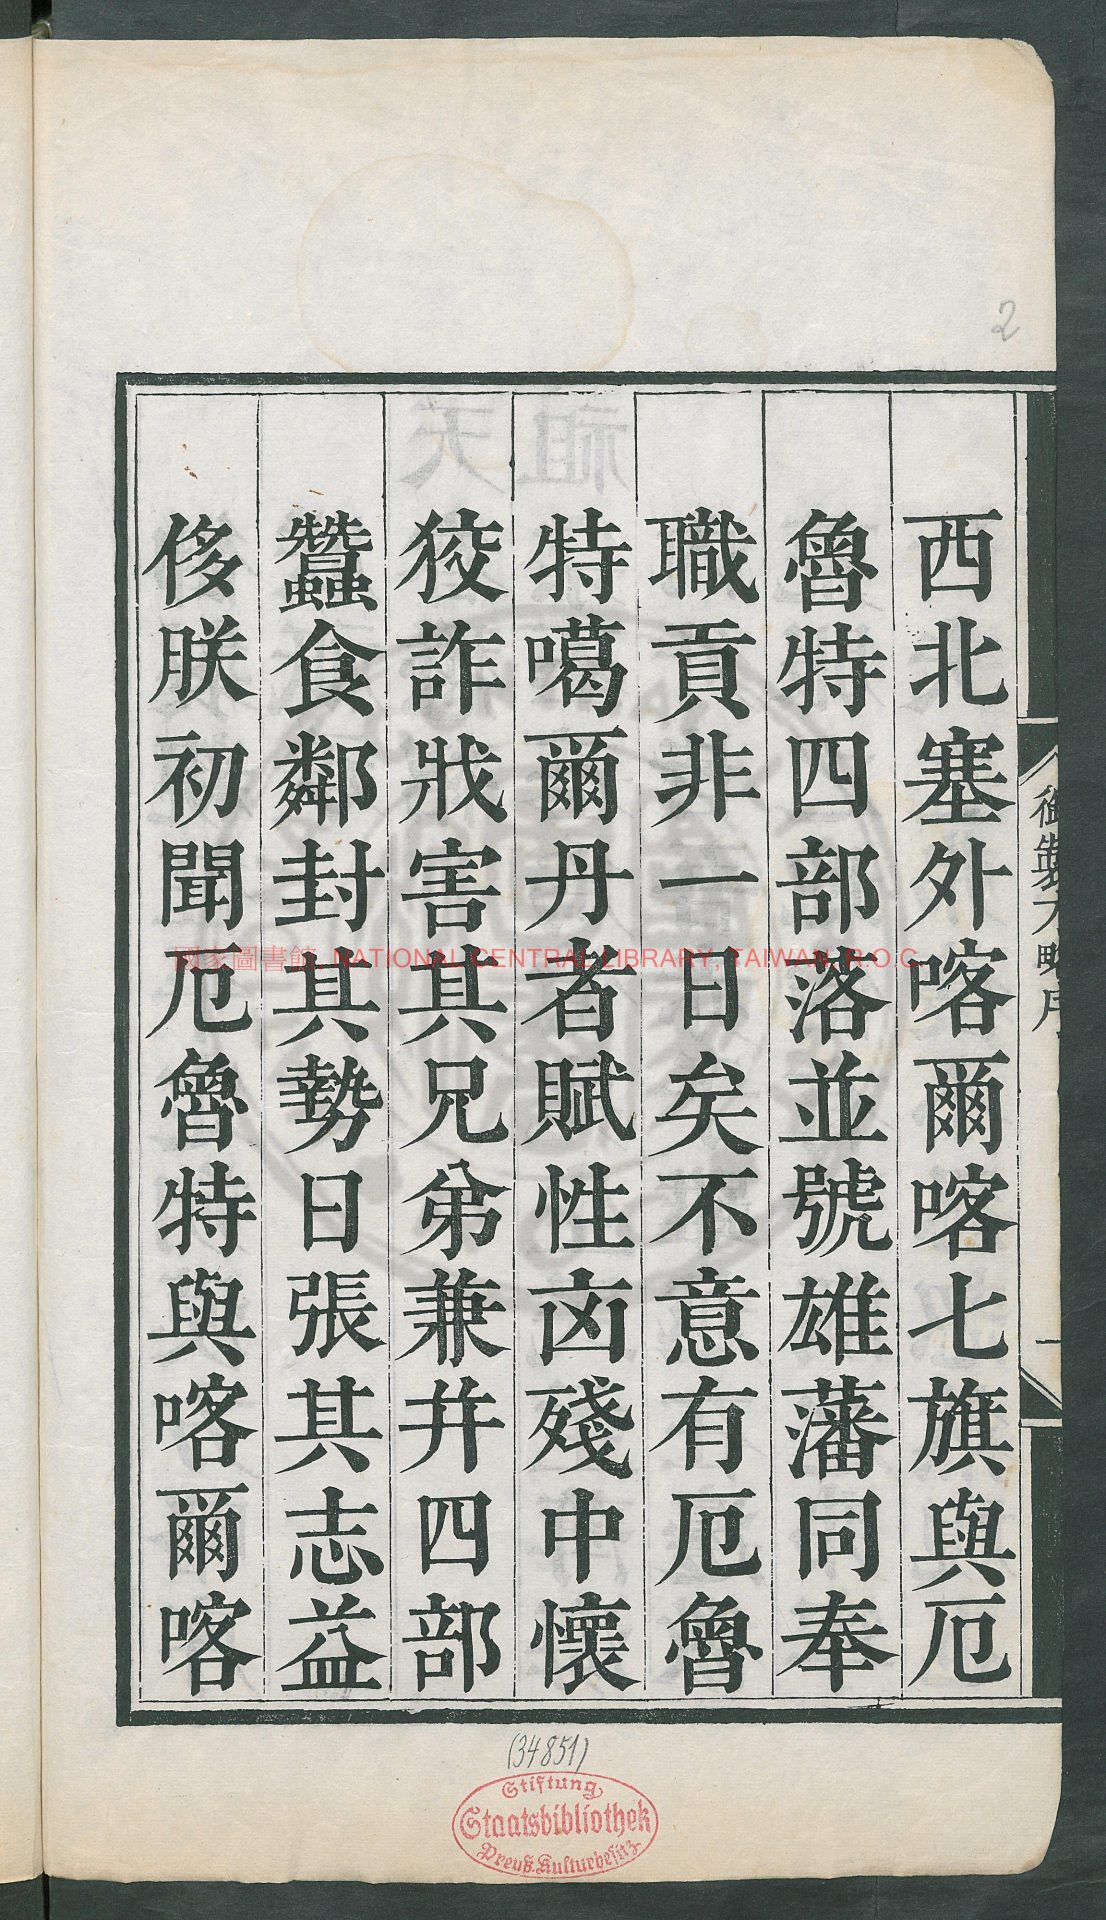 西北塞外喀爾喀七旗與厄
魯特四部落並號雄藩同奉
職貢非一日矣不意有厄魯
特噶爾丹者賦性凶殘中懷
狡詐戕害其兄弟兼并四部
蠶食鄰封其勢日張其志益
侈朕初聞厄魯特與喀爾喀
御製方略序
一
2
國家圖書館, NATIONAL CENTRAL LIBRARY, TAIWAN, R.O.C
(34851)
Stiftung
Staatsbibliothek
Preuß. Kulturbesitz